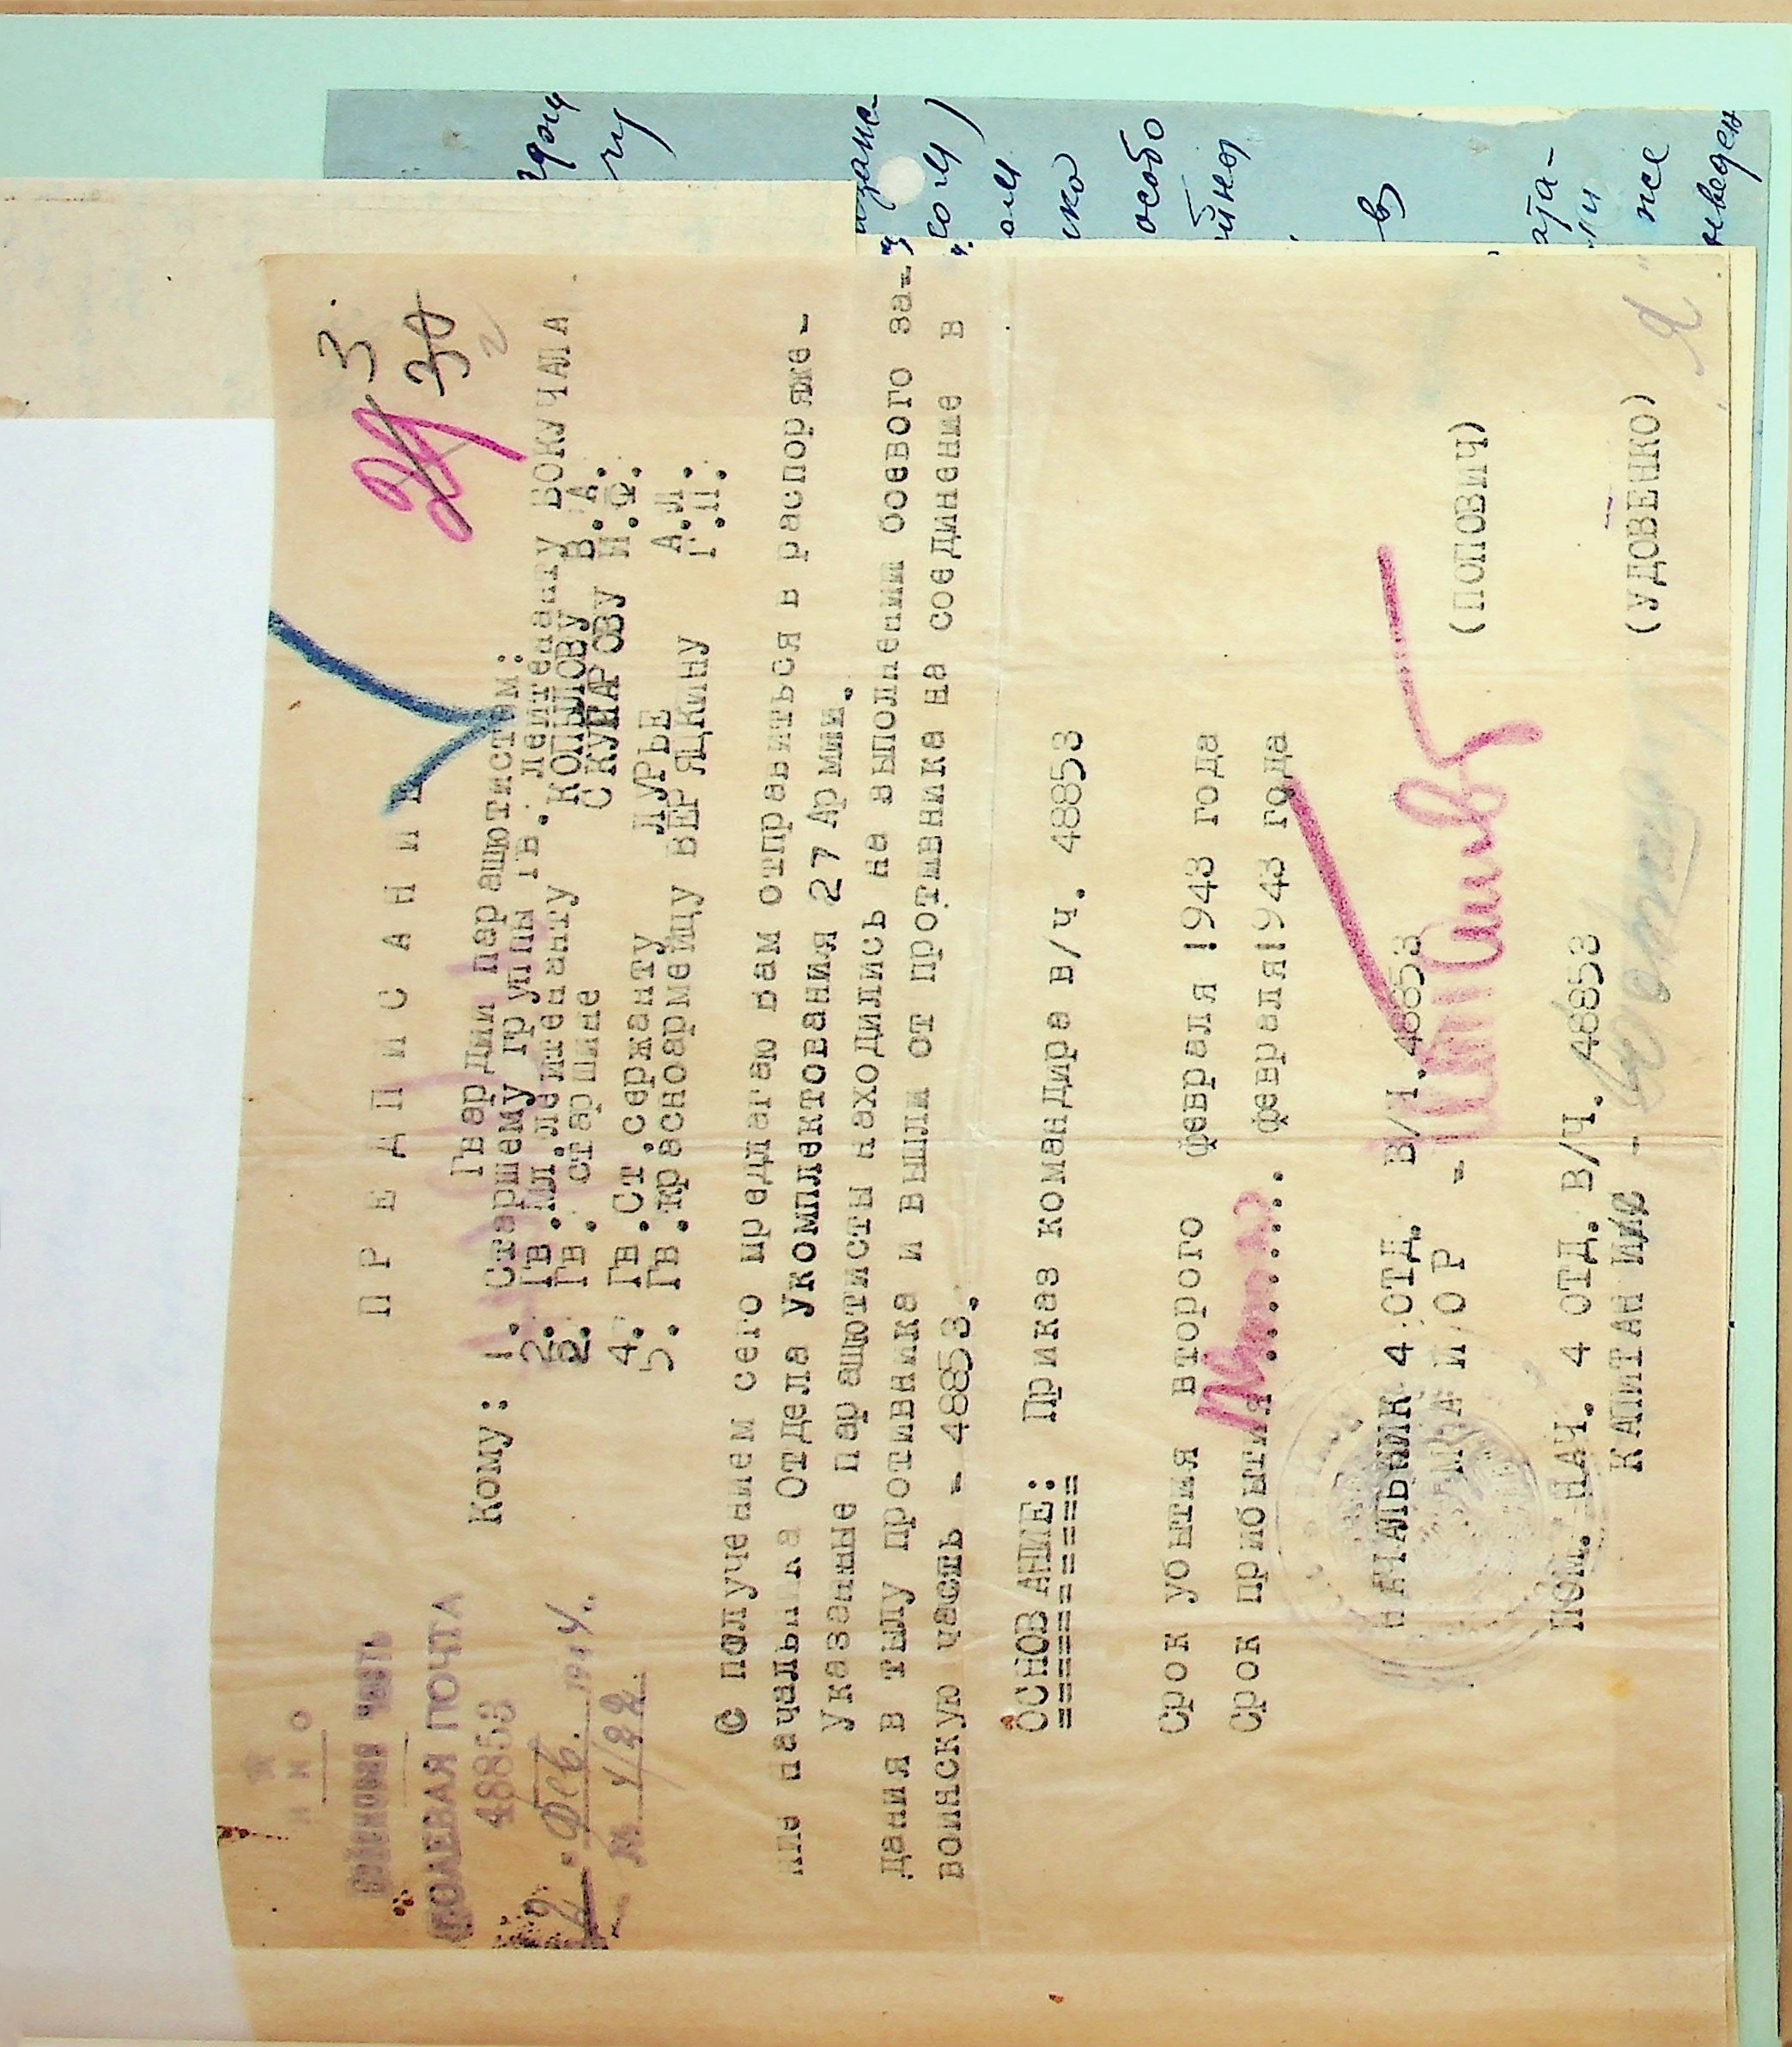 Н К О
ВОИНСКАЯ ЧАСТЬ
ПОЛЕВАЯ ПОЧТА
48853
2. Фев. 194
№ 1/22
3.
30
П Р Е Д П И С А Н И Е
Кому: Гвардии парашютистам:
1. Старшему группы гв. лейтенанту БОКУЧАВА
2. Гв.мл.лейтенанту КОПЫЛОВУ В.А.
2. Гв. старшине СКУЛЯРОВУ И.Ф.
4. Гв.Ст.сержанту ЛУРЬЕ А.Л.
5. Гв.красноармейцу ВЕРЯЦКИНУ Г.П.
С получением сего предлагаю вам отправиться в распоряже-
ние начальника Отдела Укомплектования 27 Армии.
Указанные парашютисты находились на выполнении боевого за-
дания в тылу противника и вышли от противника на соединение в
воинскую часть - 48853.
ОСНОВАНИЕ: Приказ командира в/ч. 48853
===============
Срок убытия второго февраля 1943 года
Срок прибытия ......... февраля 1943 года
НАЧАЛЬНИК 4 ОТД. В/Ч. 48853
МАЙОР - (ПОПОВИЧ)
ПОМ. НАЧ. 4 ОТД. В/Ч. 48853
КАПИТАН И/С - (УДОВЕНКО)
особо
в
ата-
же